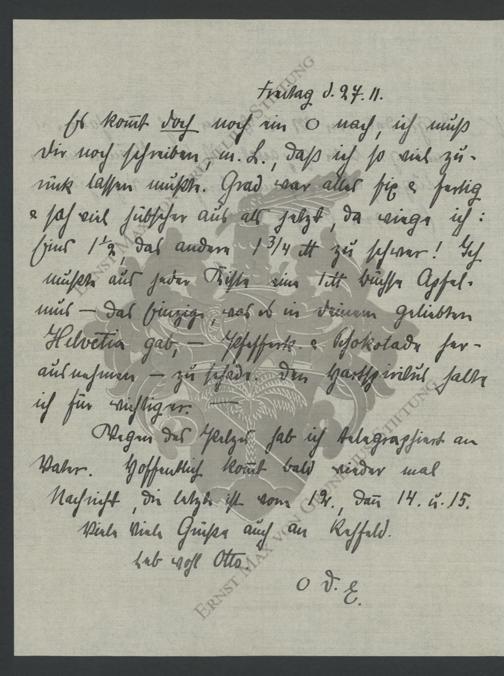 Freitag d. 27. 11.
Es kom̅t doch noch ein O nach, ich muß
Dir noch schreiben, m. L., daß ich so viel zu-
rück lassen mußte. Grad war alles fix & fertig
& sah viel hübscher aus als jetzt, da wiege ich:
Eins 1 ½, das andere 1 ¾ ℔ zu schwer! Ich
mußte aus jeder Kiste eine 1 ℔ Büchse Apfel-
mus – das Einzige, was es in deinem geliebten
Helvetia gab, – Pfefferk & Schokolade her-
ausnehmen – zu schade. Den Hartspiritus halte
ich für wichtiger. —
Wegen des Pelzes hab ich telegraphiert an
Vater. Hoffentlich kom̅t bald wieder mal
Nachricht, die letzte ist vom 12., dan̅ 14. u. 15.
Viele viele Grüße auch an Rehfeld.
Leb wohl Otto.
O d. E.
ERNST MAX VON GRUNELIUS-STIFTUNG
ERNST MAX VON GRUNELIUS-STIFTUNG